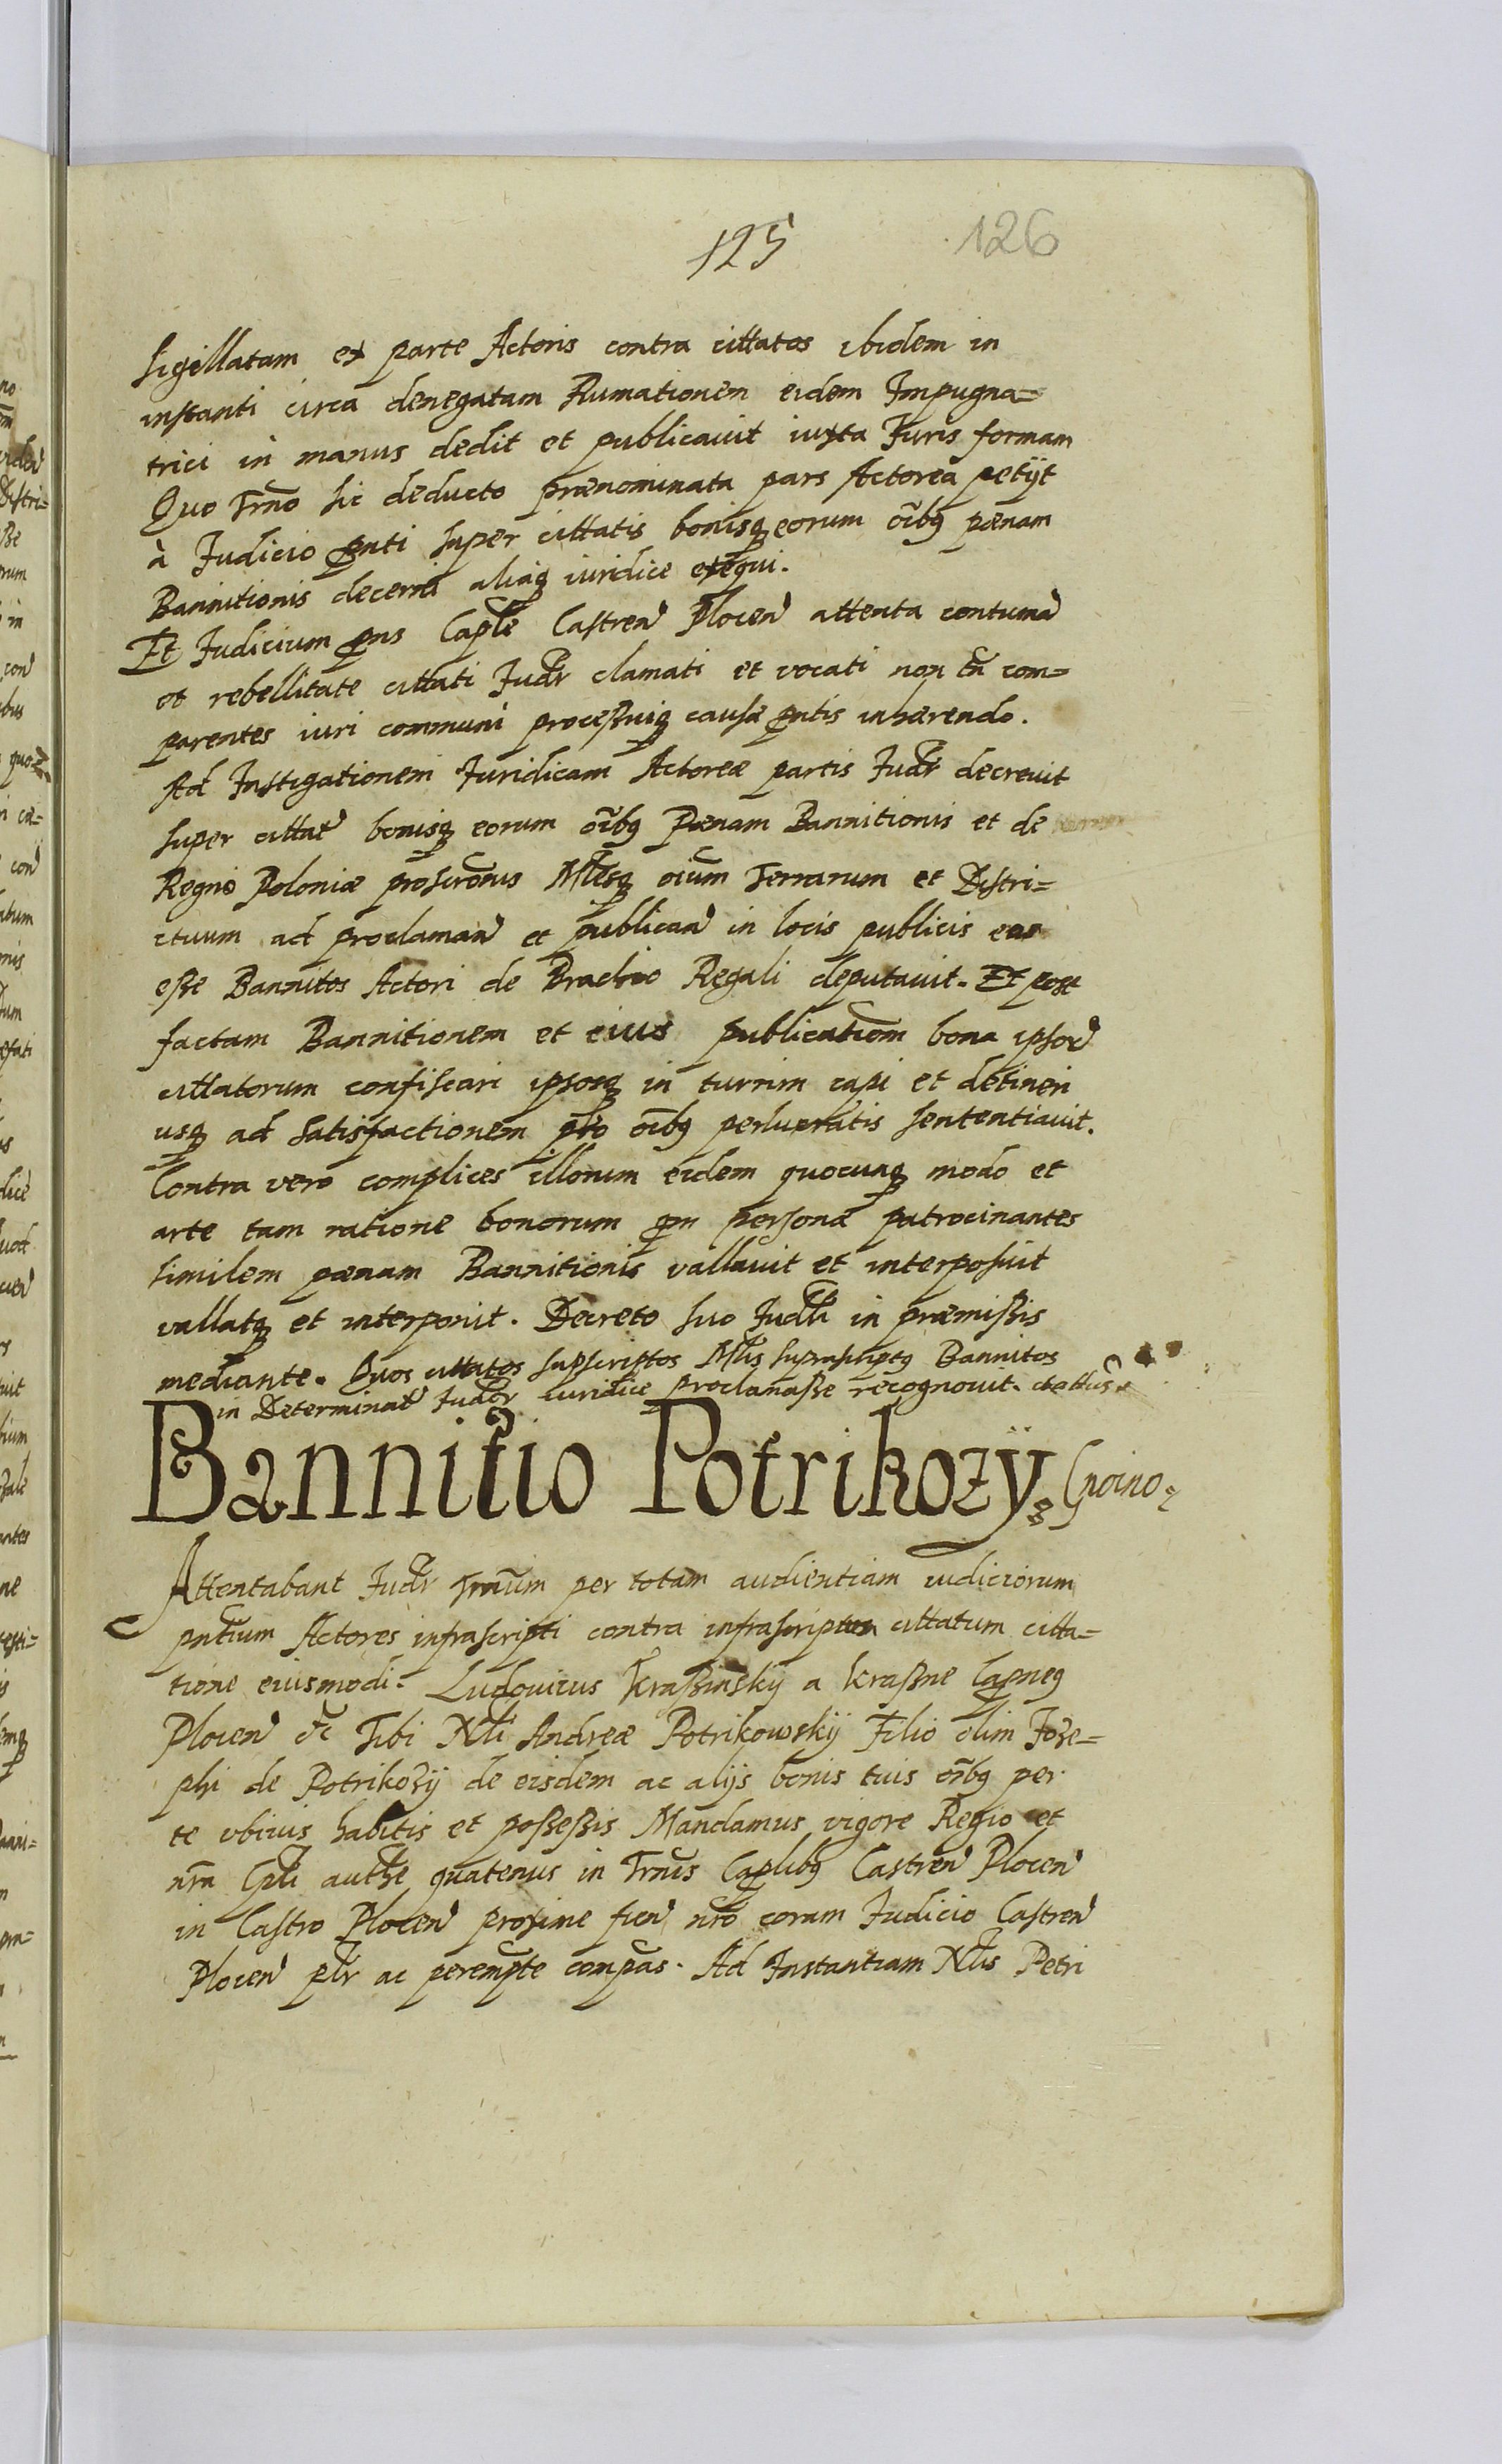 125 126
sigillatam ex parte Actoris contra cittatos ibidem in
instanti circa denegatam Rumationem eidem Impugna=
trici in manus dedit et publicavit iuxta Juris formam
Quo Trno sic deducto prænominata pars Actorea petijt
à Judicio pnti super cittatis bonisq eorum oibq pœnam
Bannitionis decerni aliaq iuridice exequi.
Et Judicium pns Caple Castren Plocen attenta contuma
et rebellitate cittati Judr clamati et vocati non tn com=
parentes iuri communi processuiq causæ pntis inhærendo.
Ad Instigationem Juridicam Actoreæ partis Judr decrevit
super cittat bonisq eorum oibq Pœnam Bannitionis et de
Regno Poloniæ proscronis Mlesq oium Terrarum et Distri=
ctuum ad proclaman et publican in locis publicis eos
esse Bannitos Actori de Brachio Regali deputavit. Et post
factam Bannitionem et eius publicationem bona ipsor
cittatorum confiscari ipsosq in turrim capi et detineri
usq ad satisfactionem pro oibq perlucratis sententiavit.
Contra vero complices illorum eidem quocunq modo et
arte tam ratione bonorum qm personæ patrocinantes
similem pœnam Bannitionis vallavit et interposuit
vallatq et interponit. Decreto suo Judli in præmissis
mediante. Quos cittatos supscriptos Mlis suprascriptq Bannitos
in Determinat Judor iuridice proclamasse recognovit.
Bannitio Potrikozÿ
Attentabant Judr Trnum per totam audientiam iudiciorum
pntium Actores infrascripti contra infrascriptum cittatum citta=
tione eiusmodi. Ludovicus Krassinskij a Krassne Capneq
Plocen &c Tibi Nli Andreæ Potrikowskij Filio olim Joze=
phi de Potrikozij de eisdem ac alijs bonis tuis oibq per
te ubivis habitis et possessis Mandamus vigore Regio et
nra Cpli authe quatenus in Trnis Caplibq Castren Plocen
in Castro Plocen proxime fien nro coram Judicio Castren
Plocen plr ac perempte compas. Ad Instantiam Nlis Petri